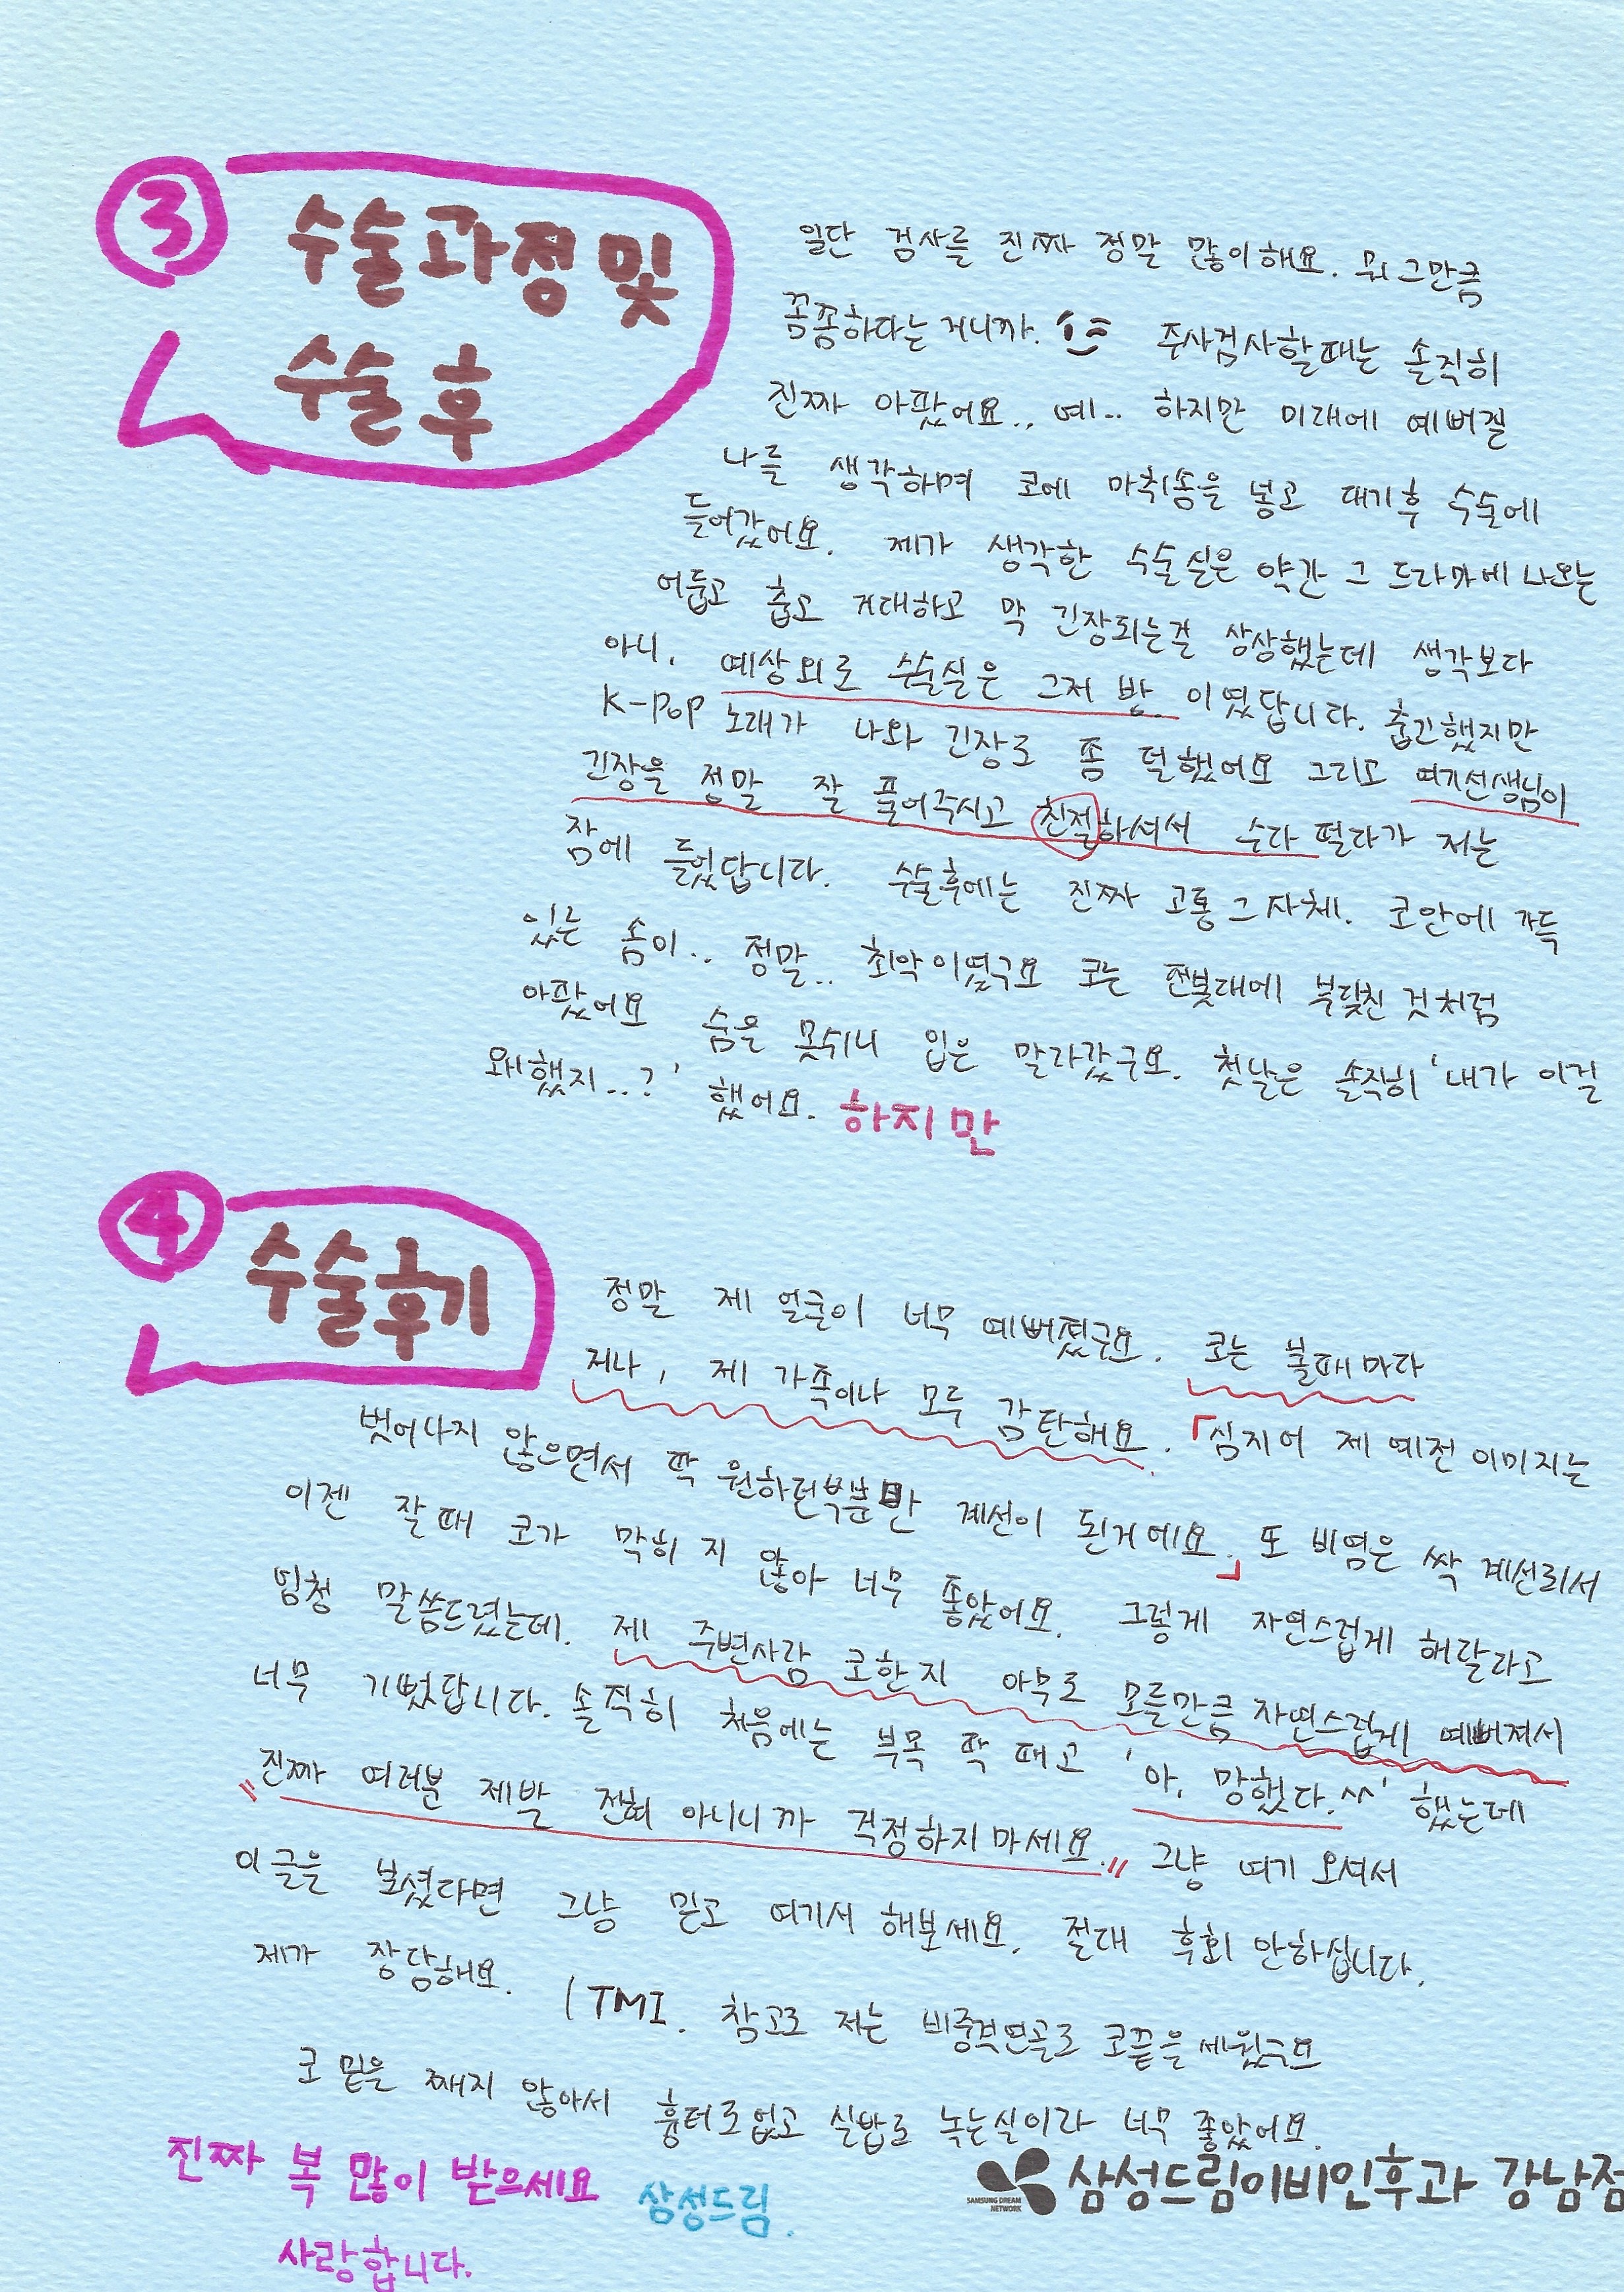 ③ 수술과정 및
수술 후
일단 검사를 진짜 정말 많이해요. 뭐 그만큼
꼼꼼하다는거니까. 주사검사할때는 솔직히
진짜 아팠어요.. 예.. 하지만 미래에 예뻐질
나를 생각하며 코에 마취솜을 넣고 대기후 수술에
들어갔어요. 제가 생각한 수술실은 약간 그 드라마에 나오는
어둡고 춥고 거대하고 막 긴장되는걸 상상했는데 생각보다
아니, 예상외로 수술실은 그저 방 이였답니다. 춥긴했지만
K-POP 노래가 나와 긴장도 좀 덜했어요 그리고 여기선생님이
긴장을 정말 잘 풀어주시고 친절하셔서 수다 떨다가 저는
잠에 들었답니다. 수술후에는 진짜 고통 그 자체. 코안에 가득
있는 솜이.. 정말.. 최악이였구요 코는 전봇대에 부딪친 것처럼
아팠어요 숨을 못쉬니 입은 말라갔구요. 첫날은 솔직히 '내가 이걸
왜했지..?' 했어요. 하지만
④ 수술후기
정말 제 얼굴이 너무 예뻐졌구요. 코는 볼때마다
저나, 제 가족이나 모두 감탄해요. 「심지어 제 예전 이미지는
벗어나지 않으면서 딱 원하던 만 계선이 된거에요.」 또 비염은 싹 계선되서
이젠 잘때 코가 막히지 않아 너무 좋았어요. 그렇게 자연스럽게 해달라고
엄청 말씀드렸는데. 제 주변사람 코한지 아무도 모를만큼 자연스럽게 예뻐져서
너무 기뻤답니다. 솔직히 처음에는 부목 딱 떼고 '아, 망했다.^^' 했는데
"진짜 여러분 제발 전혀 아니니까 걱정하지마세요." 그냥 여기 오셔서
이글을 보셨다면 그냥 믿고 여기서 해보세요. 절대 후회 안하십니다.
제가 장담해요. (TMI. 참고로 저는 비중격연골로 코끝을 세웠구요
코 밑을 째지 않아서 흉터도없고 실밥도 녹는실이라 너무 좋았어요.
진짜 복 많이 받으세요 삼성드림.
사랑합니다.
SAMSUNG DREAM NETWORK 삼성드림이비인후과 강남점